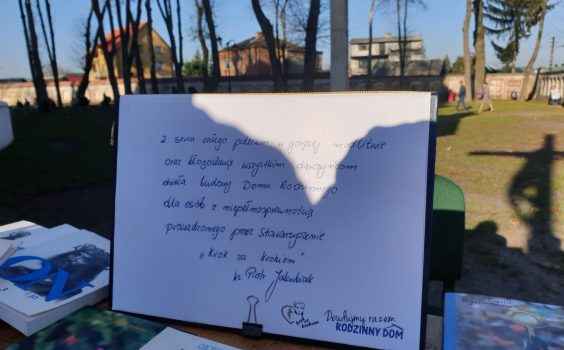 Z serca całego polecam w gorącej modlitwie
oraz błogosławię wszystkim
dzieła budowy Domu Rodzinnego
dla osób z niepełnosprawnością
prowadzonego przez Stowarzyszenie
„Krok za krokiem"
ks. Piotr
Zbudujmy razem
RODZINNY DOM